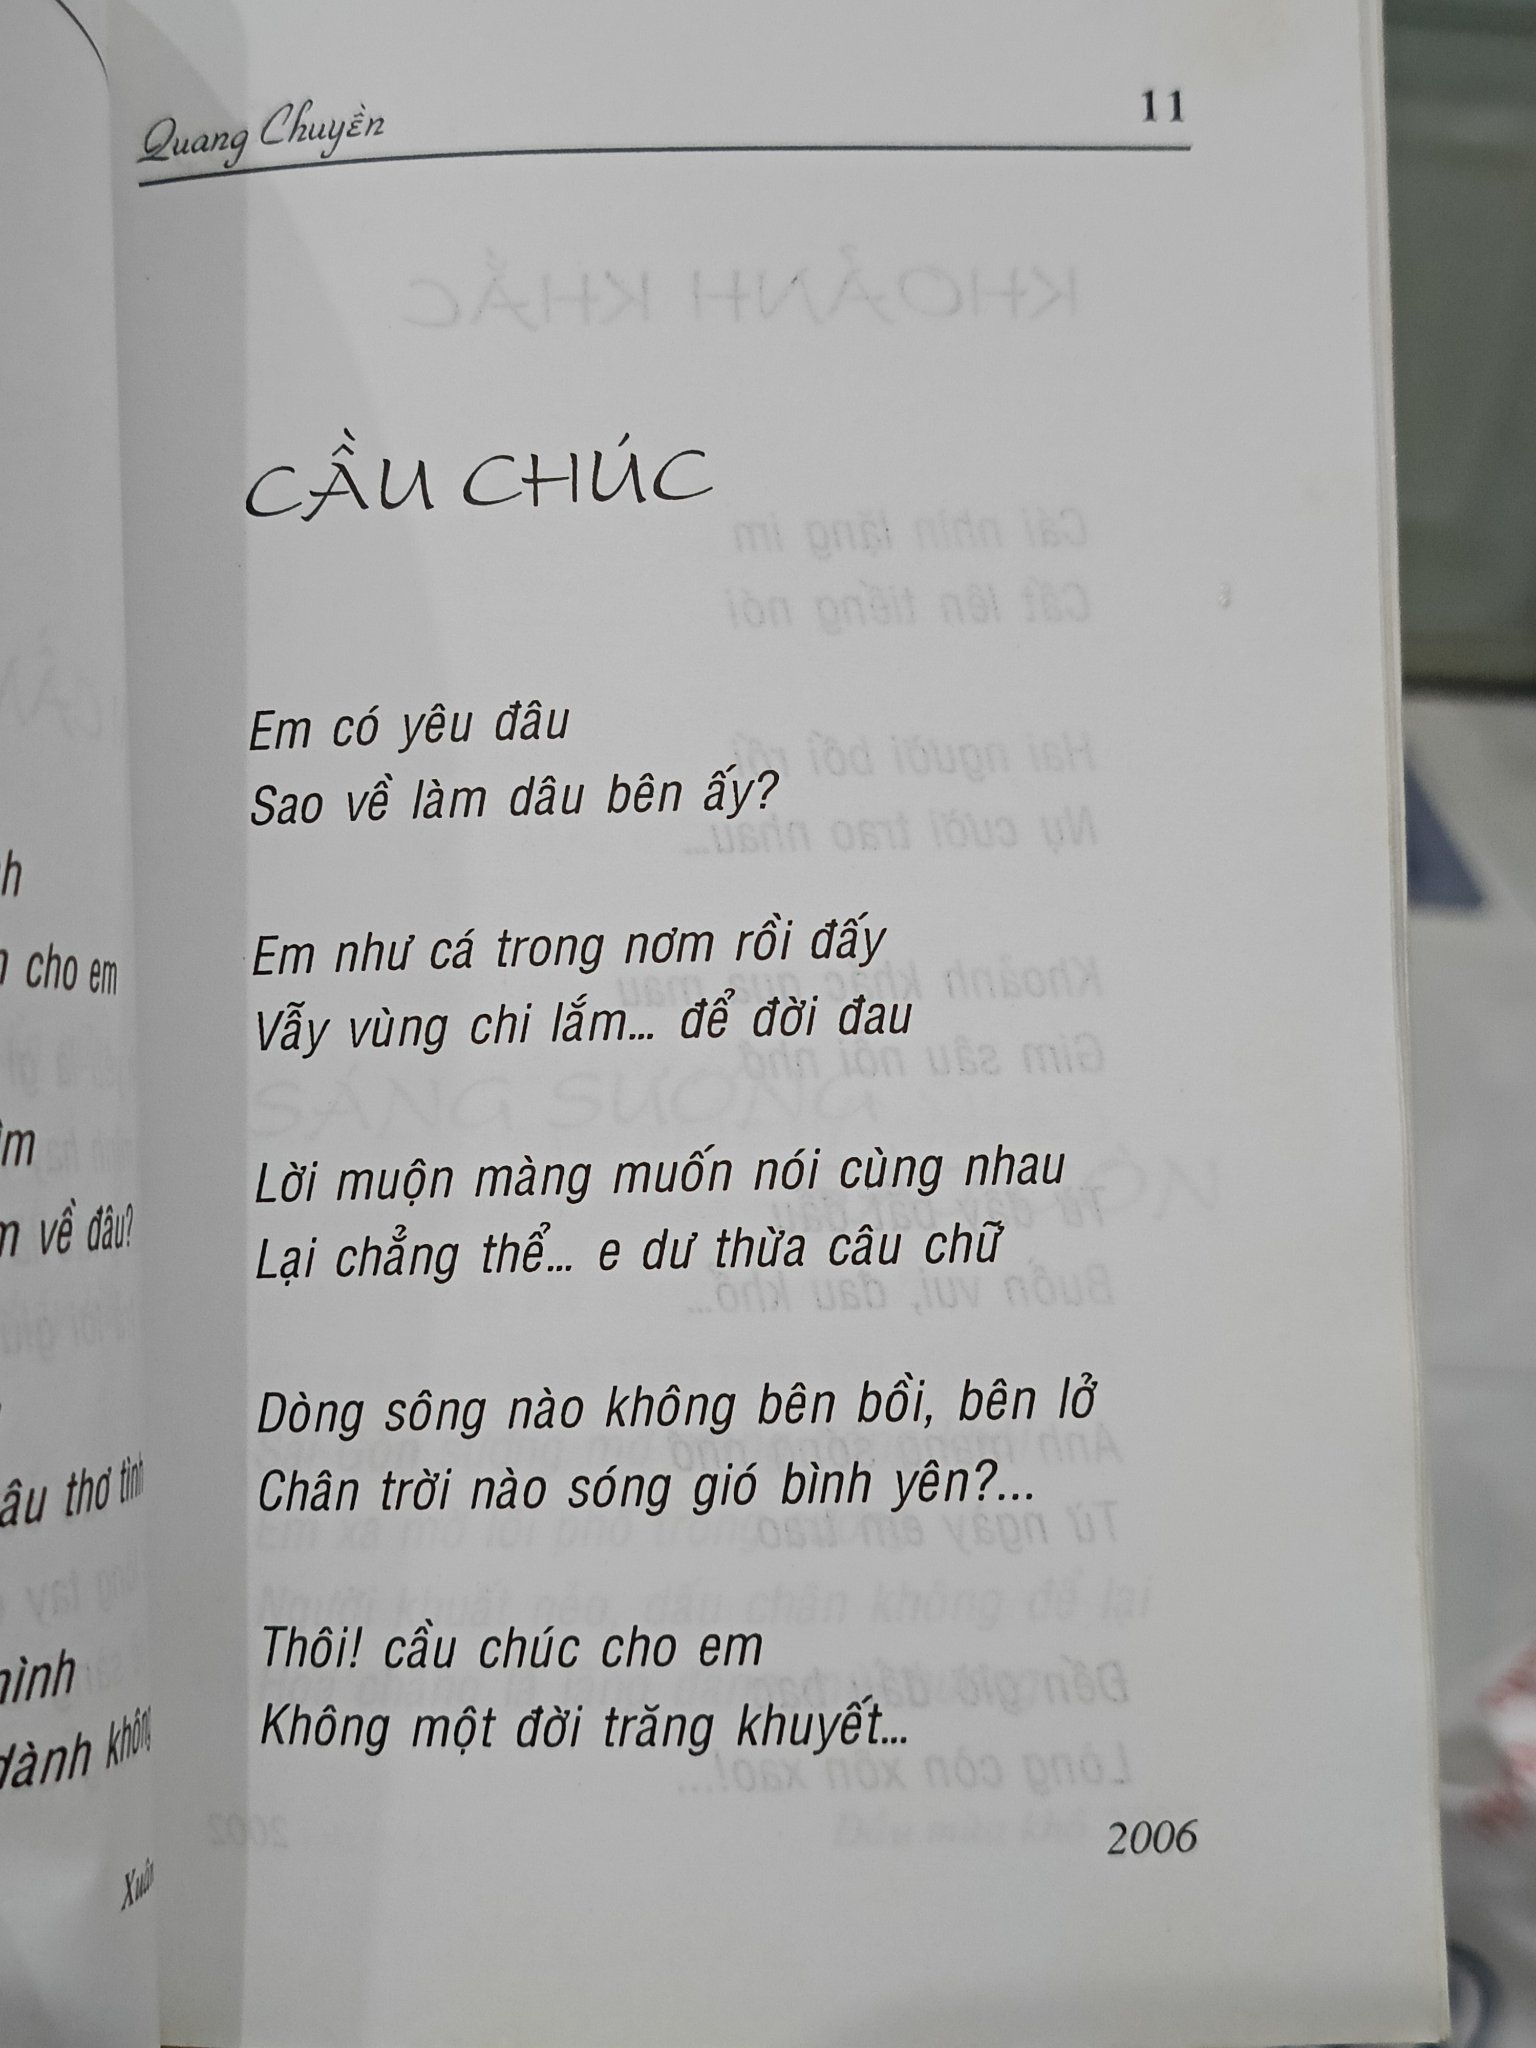 Quang Chuyền
11
CẦU CHÚC
Em có yêu đâu
Sao về làm dâu bên ấy?
Em như cá trong nơm rồi đấy
Vẫy vùng chi lắm... để đời đau
Lời muộn màng muốn nói cùng nhau
Lại chẳng thể... e dư thừa câu chữ
Dòng sông nào không bên bồi, bên lở
Chân trời nào sóng gió bình yên?...
Thôi! cầu chúc cho em
Không một đời trăng khuyết...
2006
cho em
về đâu?
thơ tình
không